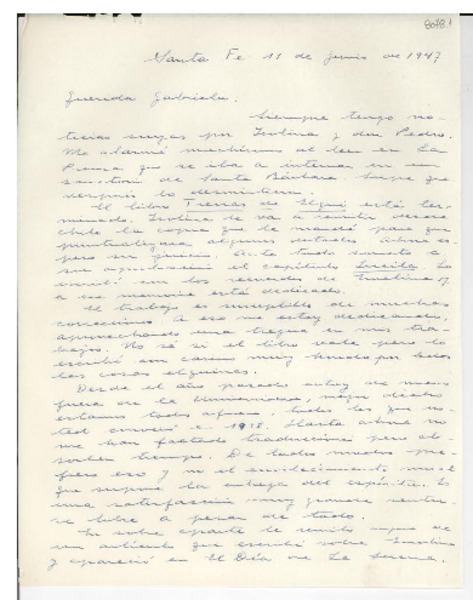 8078.1
Santa Fe 11 de junio de 1947
Querida Gabriela.
Siempre tengo no-
ticias suyas por Isolina y don Pedro.
Me alarmé muchísimo al leer en La
Prensa que se iba a internar en un
sanatorio de Santa Bárbara. Supe que
después lo desmintieron.
El libro Tierras de Elqui está ter-
minado. Isolina le va a remitir desde
Chile la copia que le mandé para que
puntualizara algunos detalles. Ahora es-
pero su juicio. Ante todo someto a
su aprobación el capítulo Lucila. Lo
escribí con los recuerdos de Emelina y
a su memoria está dedicado.
El trabajo es susceptible de muchas
correcciones. A eso me estoy dedicando,
aprovechando una tregua en mis tra-
bajos. No sé si el libro vale pero lo
escribí con cariño muy hondo por todas
las cosas elquinas.
Desde el año pasado estoy de nuevo
fuera de la Universidad, mejor dicho
estamos todos afuera, todos los que us-
ted conoció en 1938. Hasta ahora no
me han faltado traducciones pero ab-
sorben tiempo. De todos modos pre-
fiero eso y no el envilecimiento moral
que supone la entrega del espíritu. Es
una satisfacción muy grande sentir-
se libre a pesar de todo.
En sobre aparte le remito copia de
un artículo que escribí sobre Emelina
y apareció en El Día de La Serena.